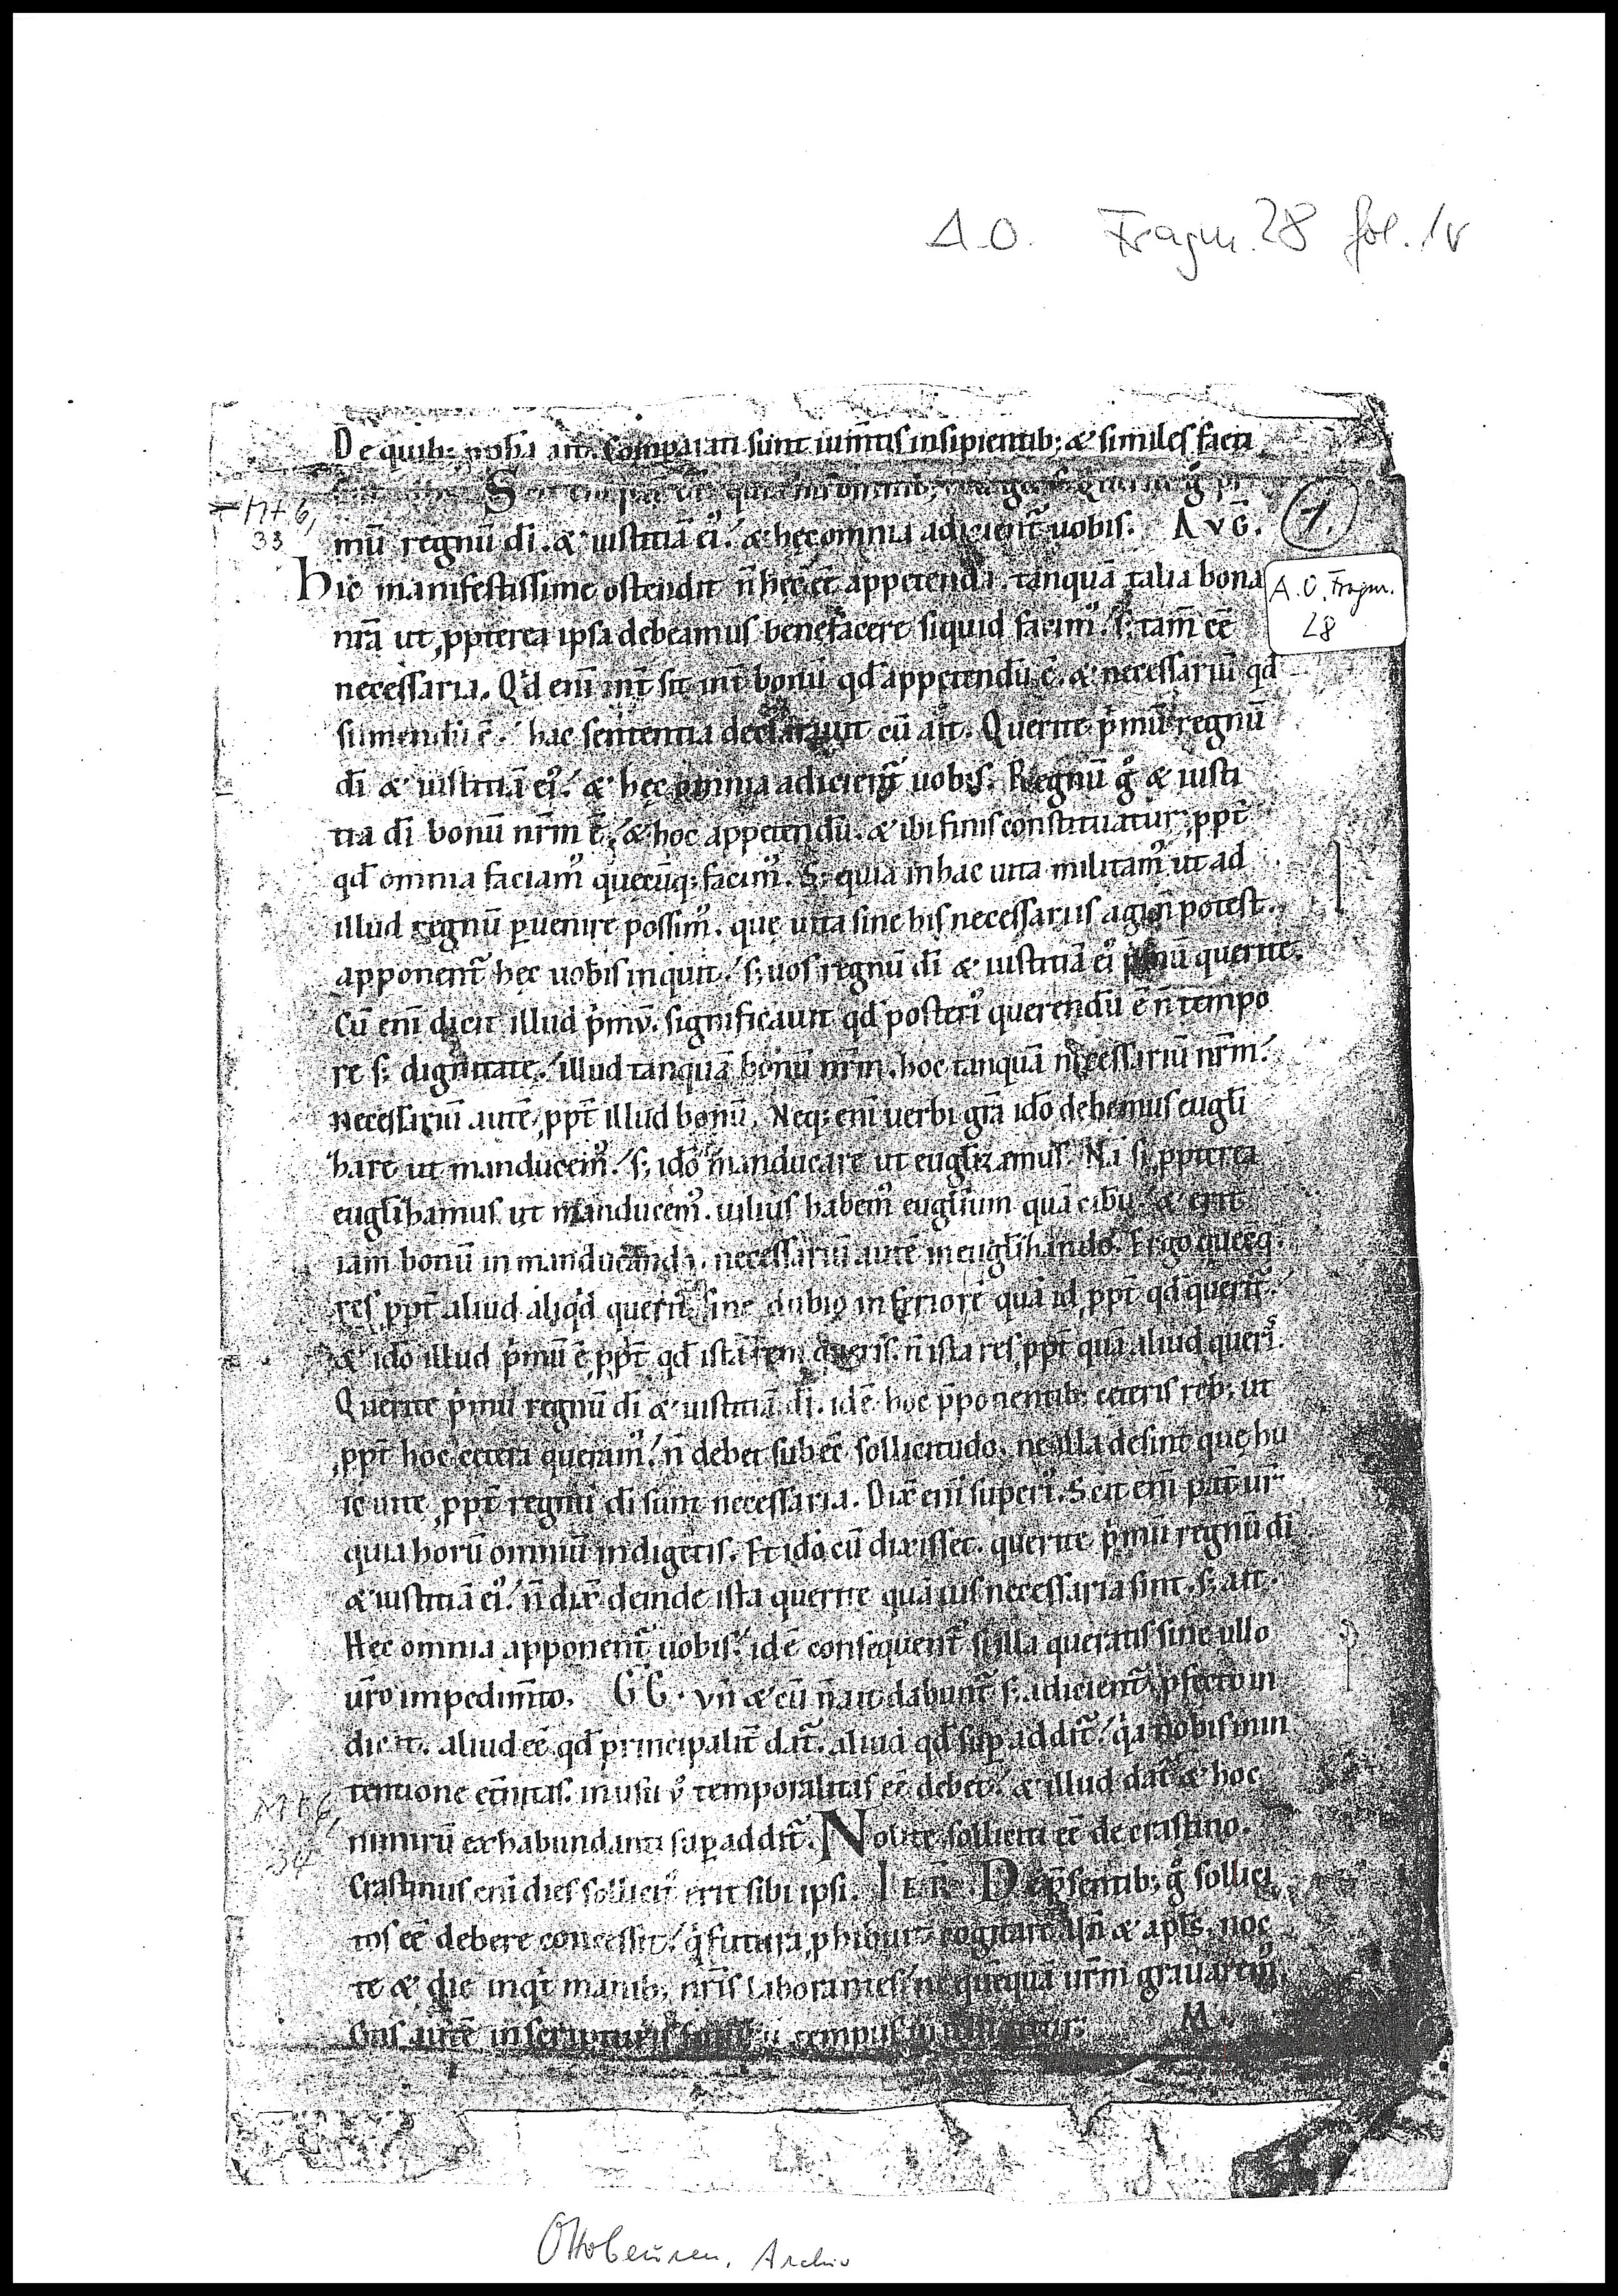 A.O. Fragm. 28 fol. 1v
De quib; ait. Comparati sunt ium̄tis insipientib; & similes facti
S
Mt 6,
33
mū regnū dī. & iustitiā eiꝰ. & hęc omnia adicient᷑ uobis. AVG.
1.
Hic manifestissime ostendit n̄ hęc eē appetenda. tanquā talia bona
A.O. Fragm.
28
nr̄a ut ꝓpterea ipsa debeamus benefacere siquid facimꝰ. s; tam̄ eē
necessaria. Qͥd eni int̄ sit int̄ bonū qd̄ appetendū ē. & necessariū qd̄
sumendū ē. hac sententia declarauit cū ait. Querite pͥmū regnū
dī & iustitiā eiꝰ. & hęc omnia adicient᷑ uobis. Regnū gͦ & iusti
tia dī bonū nr̄m ē. & hoc appetendū. & ibi finis constituatur ꝓpt̄
qd̄ omnia faciamꝰ quecūq; facimꝰ. S; quia in hac uita militamꝰ ut ad
illud regnū ꝑuenire possimꝰ. quę uita sine his necessariis agi n̄ potest.
apponent᷑ hęc uobis inquit. s; uos regnū dī & iustitiā eiꝰ pͥmū querite.
Cū eni dicit illud pͥmū. significauit qd̄ posteriꝰ querendū ē n̄ tempo
re s; dignitate. illud tanquā bonū nr̄m. hoc tanquā necessariū nr̄m.
Necessariū autē ꝓpt̄ illud bonū. Neq; eni uerbi gr̄a ido debemus eugl̄i
hare ut manducemꝰ. s; ido manducare ut eugl̄izemus. Nā si ꝓpterea
eugl̄ihamus ut manducemꝰ. uilius habemꝰ eugl̄ium quā cibū. & erit
iam bonū in manducando. necessariū autē in eugl̄ihando.
res ꝓpt̄ aliud aliqͥd querit᷑. sine dubio inferiorē quā id ꝓpt̄ qd̄ querit᷑.
& ido illud pͥmū ē ꝓpt̄ qd̄ istā rem queris. n̄ ista res ꝓpt̄ quā aliud queris.
Querite pͥmū regnū dī & iustitiā dī. id ē hoc p̄ponentib; ceteris reb; ut
ꝓpt̄ hoc cetera queramꝰ. n̄ debet subeē sollicitudo. ne illa desint quę hu
ic uite ꝓpt̄ regnū dī sunt necessaria. Dix̄ eni superiꝰ. Scit eni pat̄ ur̄
quia horū omniū indigetis. Et ido cū dixisset. querite pͥmū regnū dī
& iustitiā eiꝰ. n̄ dix̄ deinde ista querite quāuis necessaria sint. s; ait.
Hec omnia apponent᷑ uobis. id ē consequent᷑ si illa queratis sine ullo
ur̄o impedim̄to. GG. Vn̄ & cū n̄ ait dabunt᷑ s; adicient᷑ ꝓfecto in
dicat. aliud eē qd̄ principalit̄ dat᷑. aliud qd̄ suꝑaddit᷑. qͥa nobis in in
tentione et̄nitas. in usu uͦ temporalitas eē debet. & illud dat᷑ & hoc
Mt 6,
34
nimirū ex habundanti suꝑaddit᷑. Nolite solliciti eē de crastino.
Crastinus eni dies sollicitꝰ erit sibi ipsi. IER. De p̄sentib; gͦ sollici
tos eē debere concessit. qͥ futura ꝓhibuit cogitare. Vn̄ & apl̄s. noc
te & die inqͥt manib; nr̄is laborantes. ne quēquā ur̄m grauaremꝰ.
Cras autē in scripturis tempus M.
Ottobeuren, Archiv